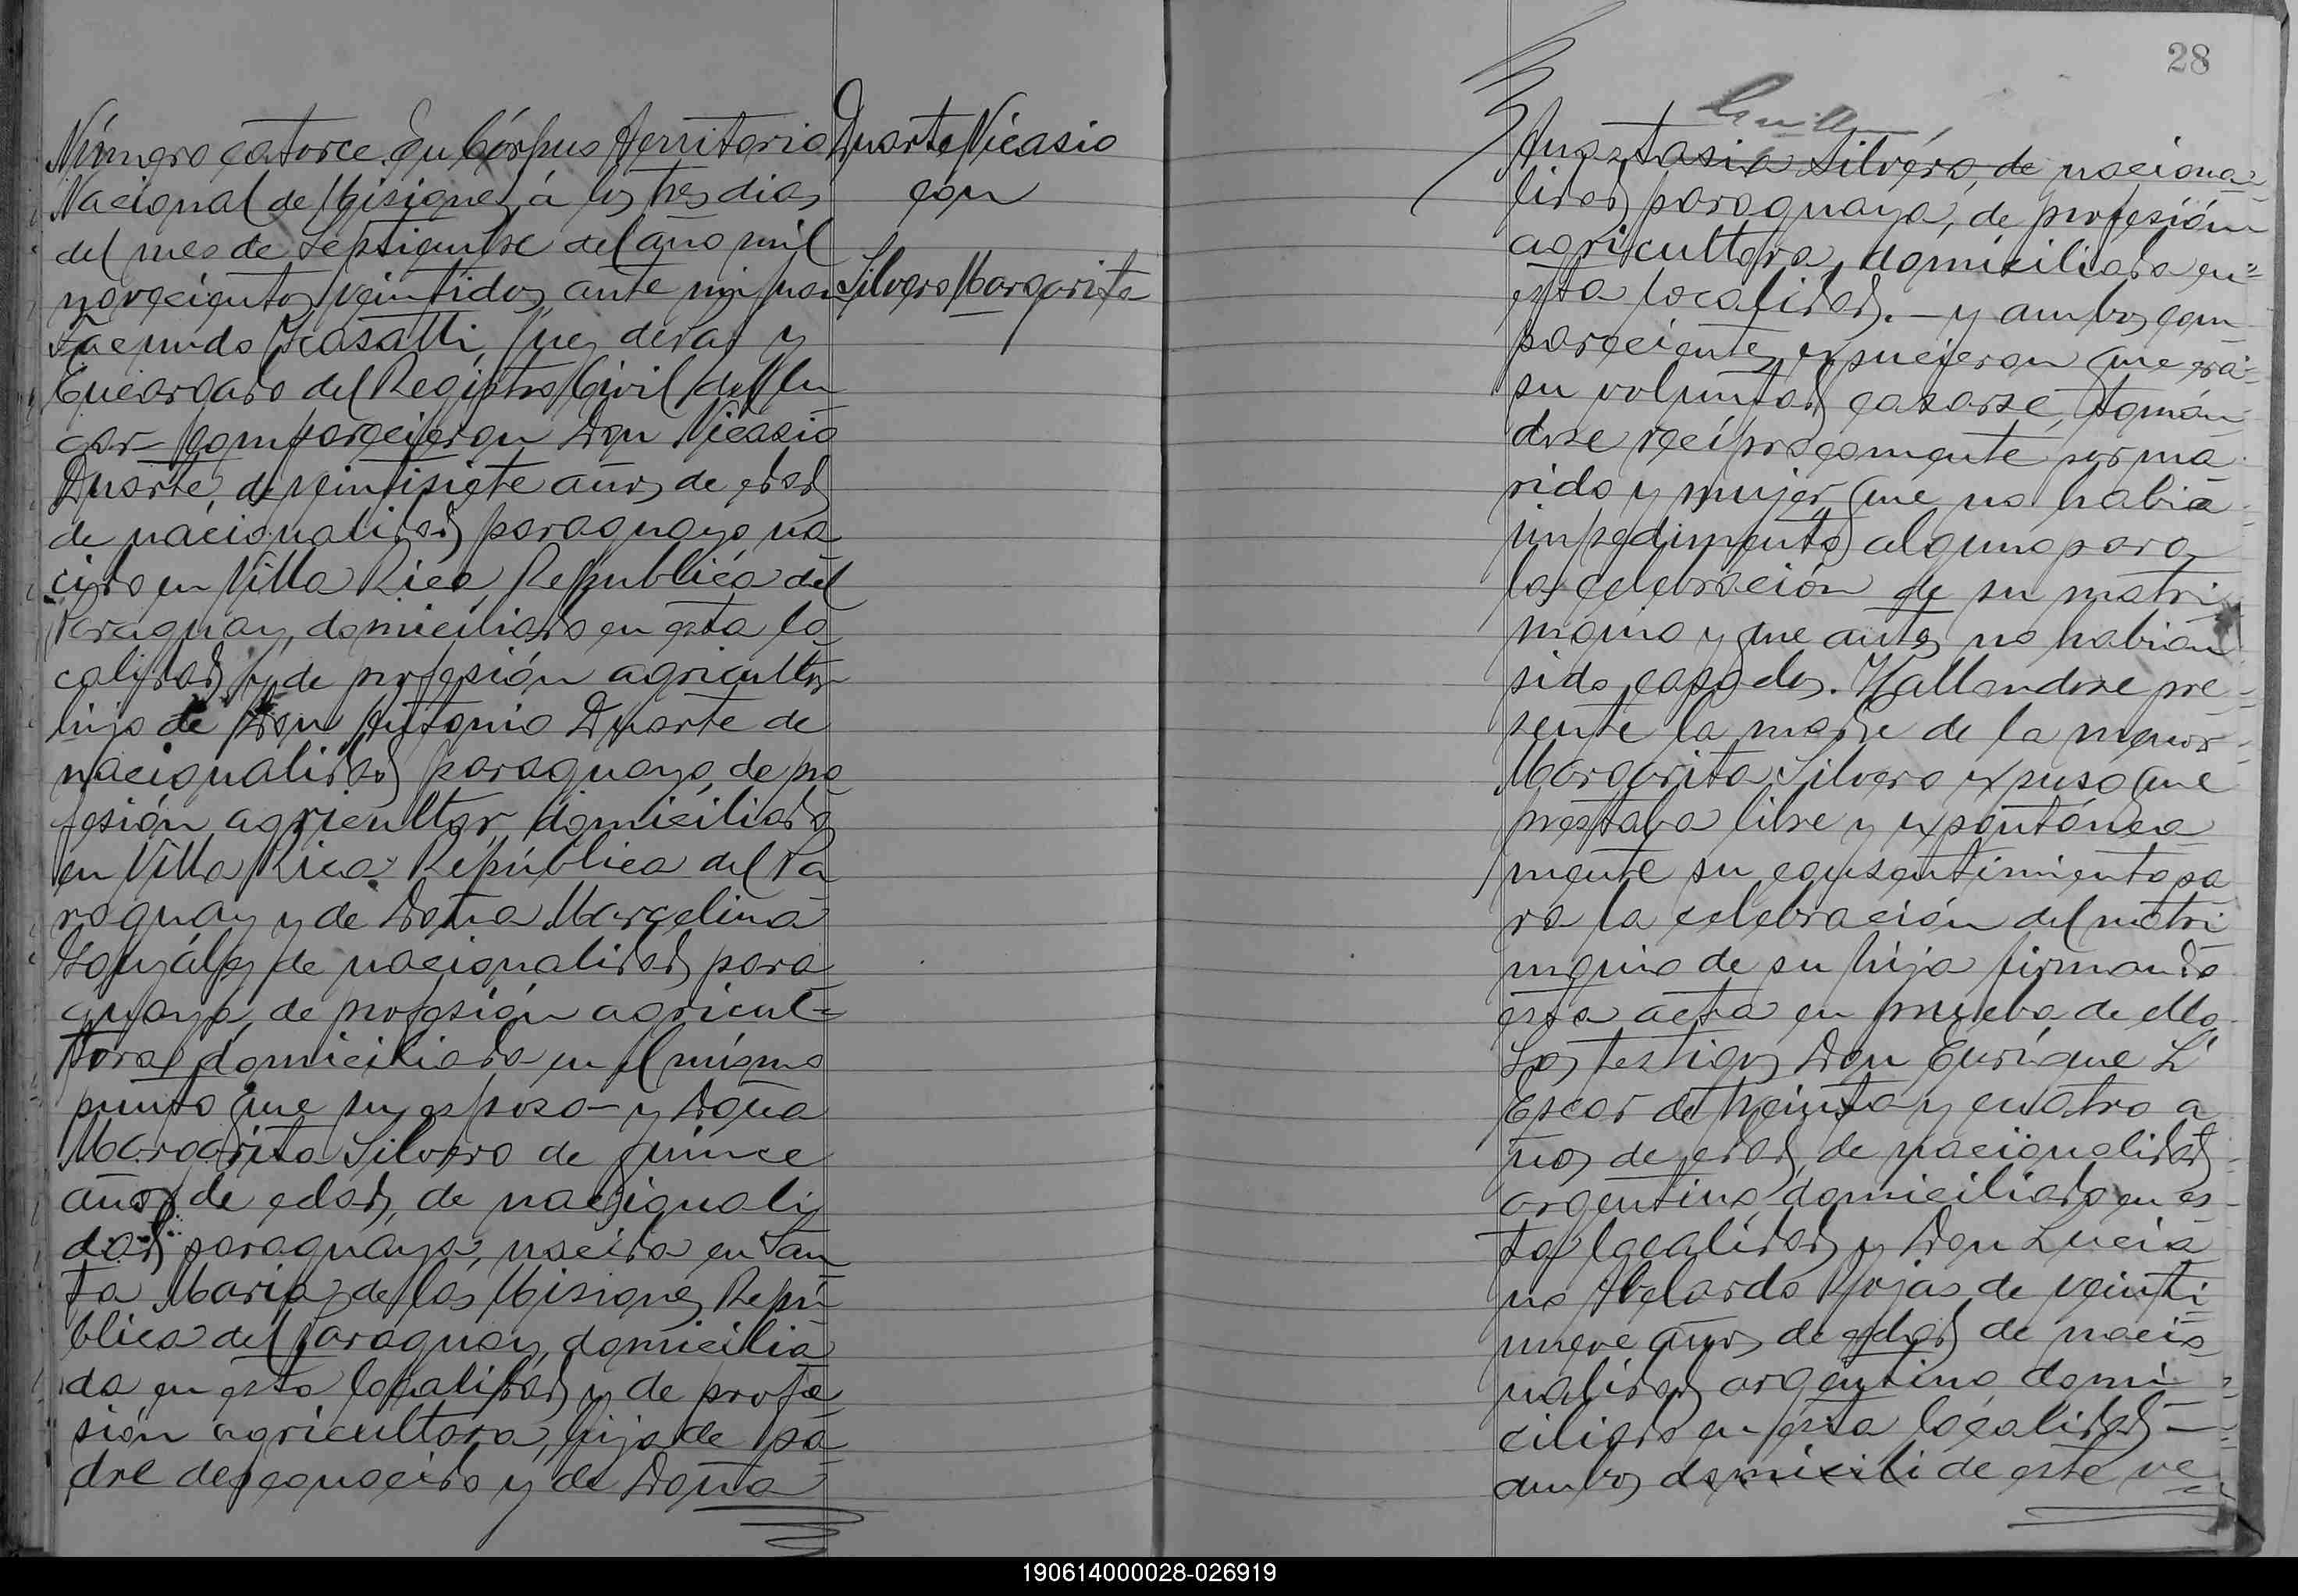 Número catorce. En Córpus Territorio
Nacional de Misiones, á los tres dias
del mes de Septiembre del año mil
novecientos veintidos, ante mi Juan
Facundo Casatti, Juez de Paz y
Encargado del Registro Civil del lu
gar comparecieron Don Nicasio
Duarte, de veintisiete años de edad
de nacionalidad paraguayo na
cido en Villa Rica, Republica del
Paraguay, domiciliado en esta lo
calidad y de profesión agricultor
hijo de Don Antonio Duarte de
nacionalidad paraguayo, de pro
fesión agricultor, domiciliado
en Villa Rica República del Pa
raguay y de Doña Marcelina
González de nacionalidad para
guaya, de profesión agricul=
tora domiciliada en el mismo
punto que su esposo — y Doña
Margarita Silvero de quince
años de edad, de nacionali
dad paraguaya, nacida en San
ta Maria de las Misiones Repú
blica del Paraguay, domicilia
da en esta localidad y de profe
sión agricultora, hija de pa
dre desconocido y de Doña
Duarte Nicasio
con
Silvero Margarita
28
Anaztasia Silvero, de naciona=
lidad paraguaya, de profesión
agricultora, domiciliada en=
esta localidad. — y ambos com
parecientes expucieron que era=
su voluntad casarse, tomán
dose recíprocamente por ma
rido y mujer que no habia
impedimento alguno para
la celebración de su matri
monio y que antes no habian
sido casados. Hallandose pre=
sente la madre de la menor=
Margarita Silvero expuso que
prestaba libre y expontánea
mente su consentimiento pa
ra la celebración del matri
monio de su hija firmando
esta acta en prueba de ello.
Los testigos Don Enrique L
Escar de treinta y cuatro a
ños de edad, de nacionalidad
argentino, domiciliado en es
ta localidad y Don Lucia
no Abelardo Rojas de veinti
nueve años de edad de nacio
nalidad argentino domi
ciliado en esta localidad —
ambos domicili de este ve
190614000028-026919